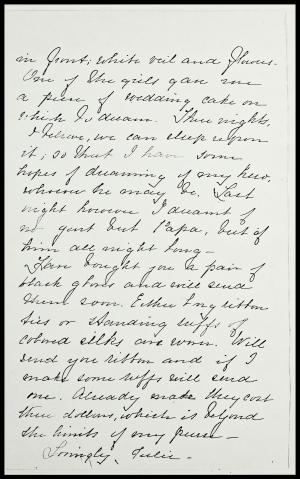 in front; white veil and gloves.
One of the girls gave me
a piece of wedding cake on
which to dream. Three nights,
I believe, we can sleep upon
it; so that I have some
hopes of dreaming of my hero,
whoever he may be. Last
night however I dreamt of
no but Papa, but of
him all night long—
Have bought you a pair of
black gloves and will send
them soon. Either long ribbon
ties or standing ruffs of
colored silks are worn. Will
send you ribbon and if I
make some ruffs will send
one. Already made they cost
three dollars, which is beyond
the limits of my purse—
Lovingly, Julie—